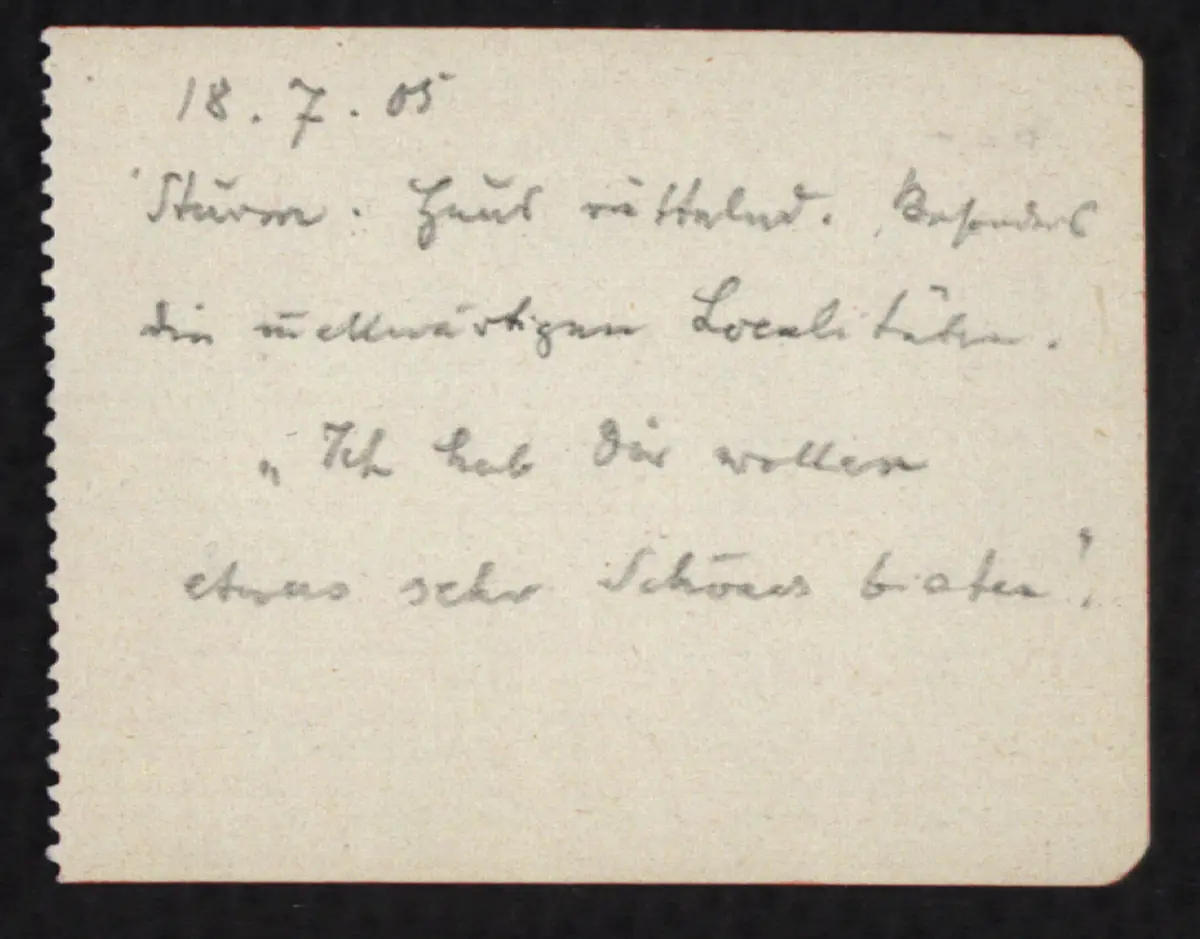 18. 7. 05
Sturm. Haus rüttelnd. Besonders
die wallwärtigen Localitäten.
„Ich hab Dir wollen
etwas sehr Schönes bieten!"